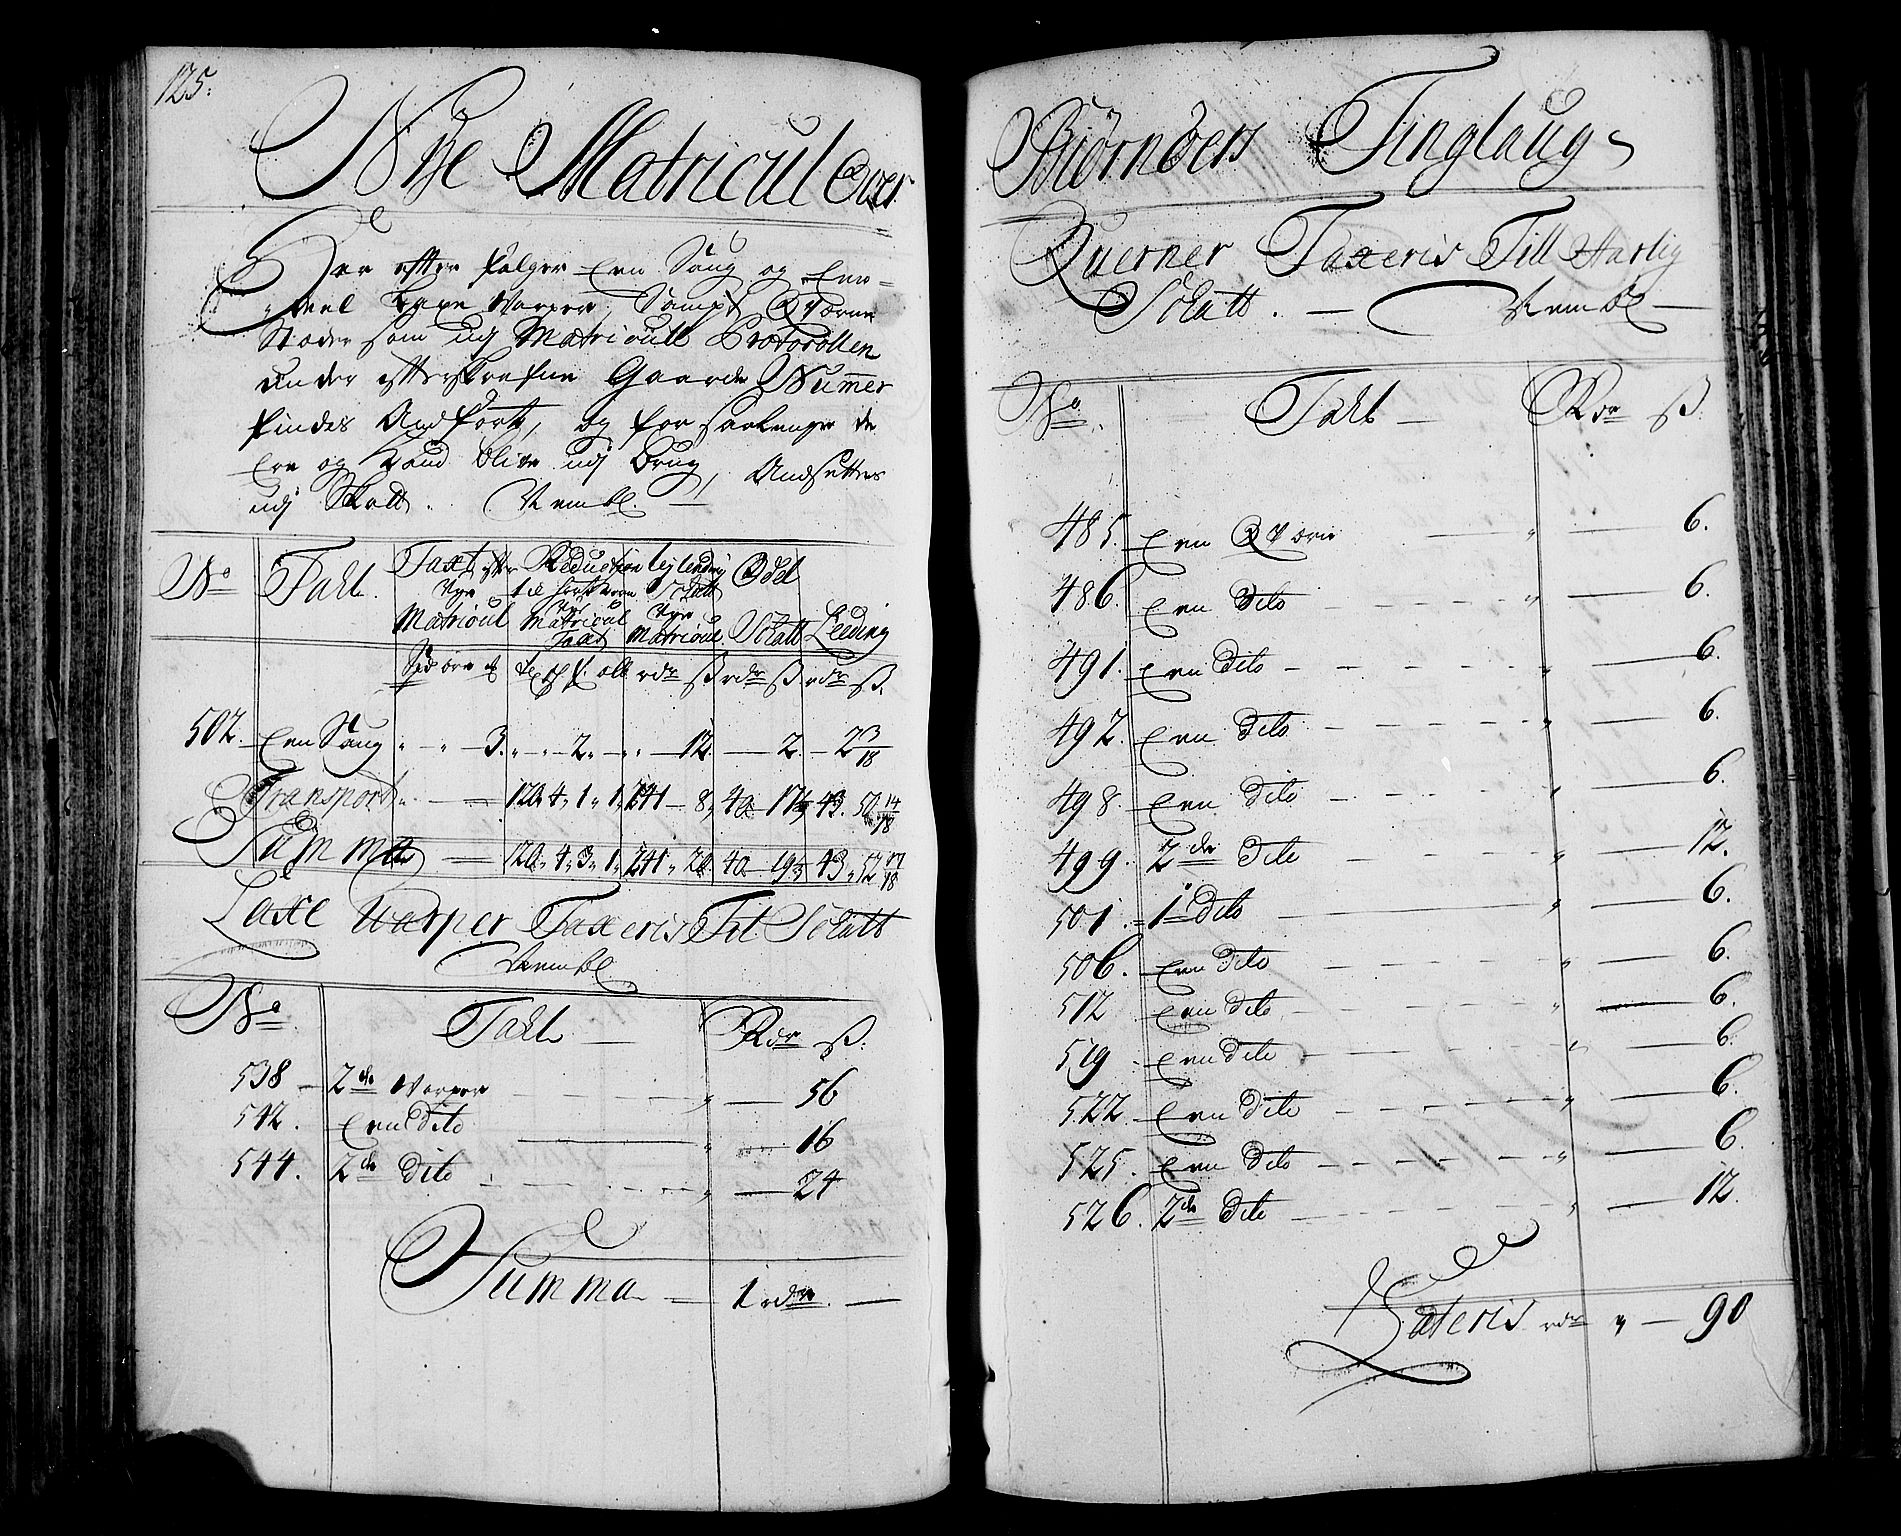 125.
Nÿe Matricul Over
Her efter følger Een Saug og Een
deel Laxe Varper, Sampt Qværne
Stæder som udj Matricull Protocollen
under efterskrefne Gaarde Nummer
findes Andført, og for saalenge de
Ere og Kand blive udj brug, Andsettes
udj Skatt. Nembl. —
No | Taklt. | Taxt efter Nye Matricul | Reduction til forskreven Nye Matricul Taxt | Lejlending Schatt Nye Matricul | Odel Schatt | Leeding
rdr ß rdr ß rdr ß.
502. Een Saug " — " — 3. " " 2 " " — 12. — 2. — 2 3/18
Transport " — 120 " 4 " 1 " 1 " 241 — 8 " 40 — 17 43. 50 14/18
Summa — 120 " 4 " 3 " 1 " 241 " 20. 40 — 19 43 " 52 17/18
Laxe Warper Taxeris Til Schatt
Nembl
No. Taklt — Rdr ß.
538 — 2de Varper " — 56
542. Een dito " — 16
544. 2de dito " — 24
Summa — 1 rdr. —
Biørnöers Tinglaug
Querner Taxeris Till Aarlig
Schatt. — Nembl —
No. Taklt — Rdr ß.
485. Een Qværn " — 6.
486. Een dito " — 6.
491. Een dito " — 6.
492. Een dito " — 6.
498. Een dito " — 6.
499. 2de dito " — 12.
501. 1 dito " — 6.
506. Een dito " — 6.
512 Een dito " — 6.
519 Een dito " — 6.
522. Een dito " — 6.
525. Een dito " — 6.
526. 2de dito " — 12.
Lateris rdr " — 90